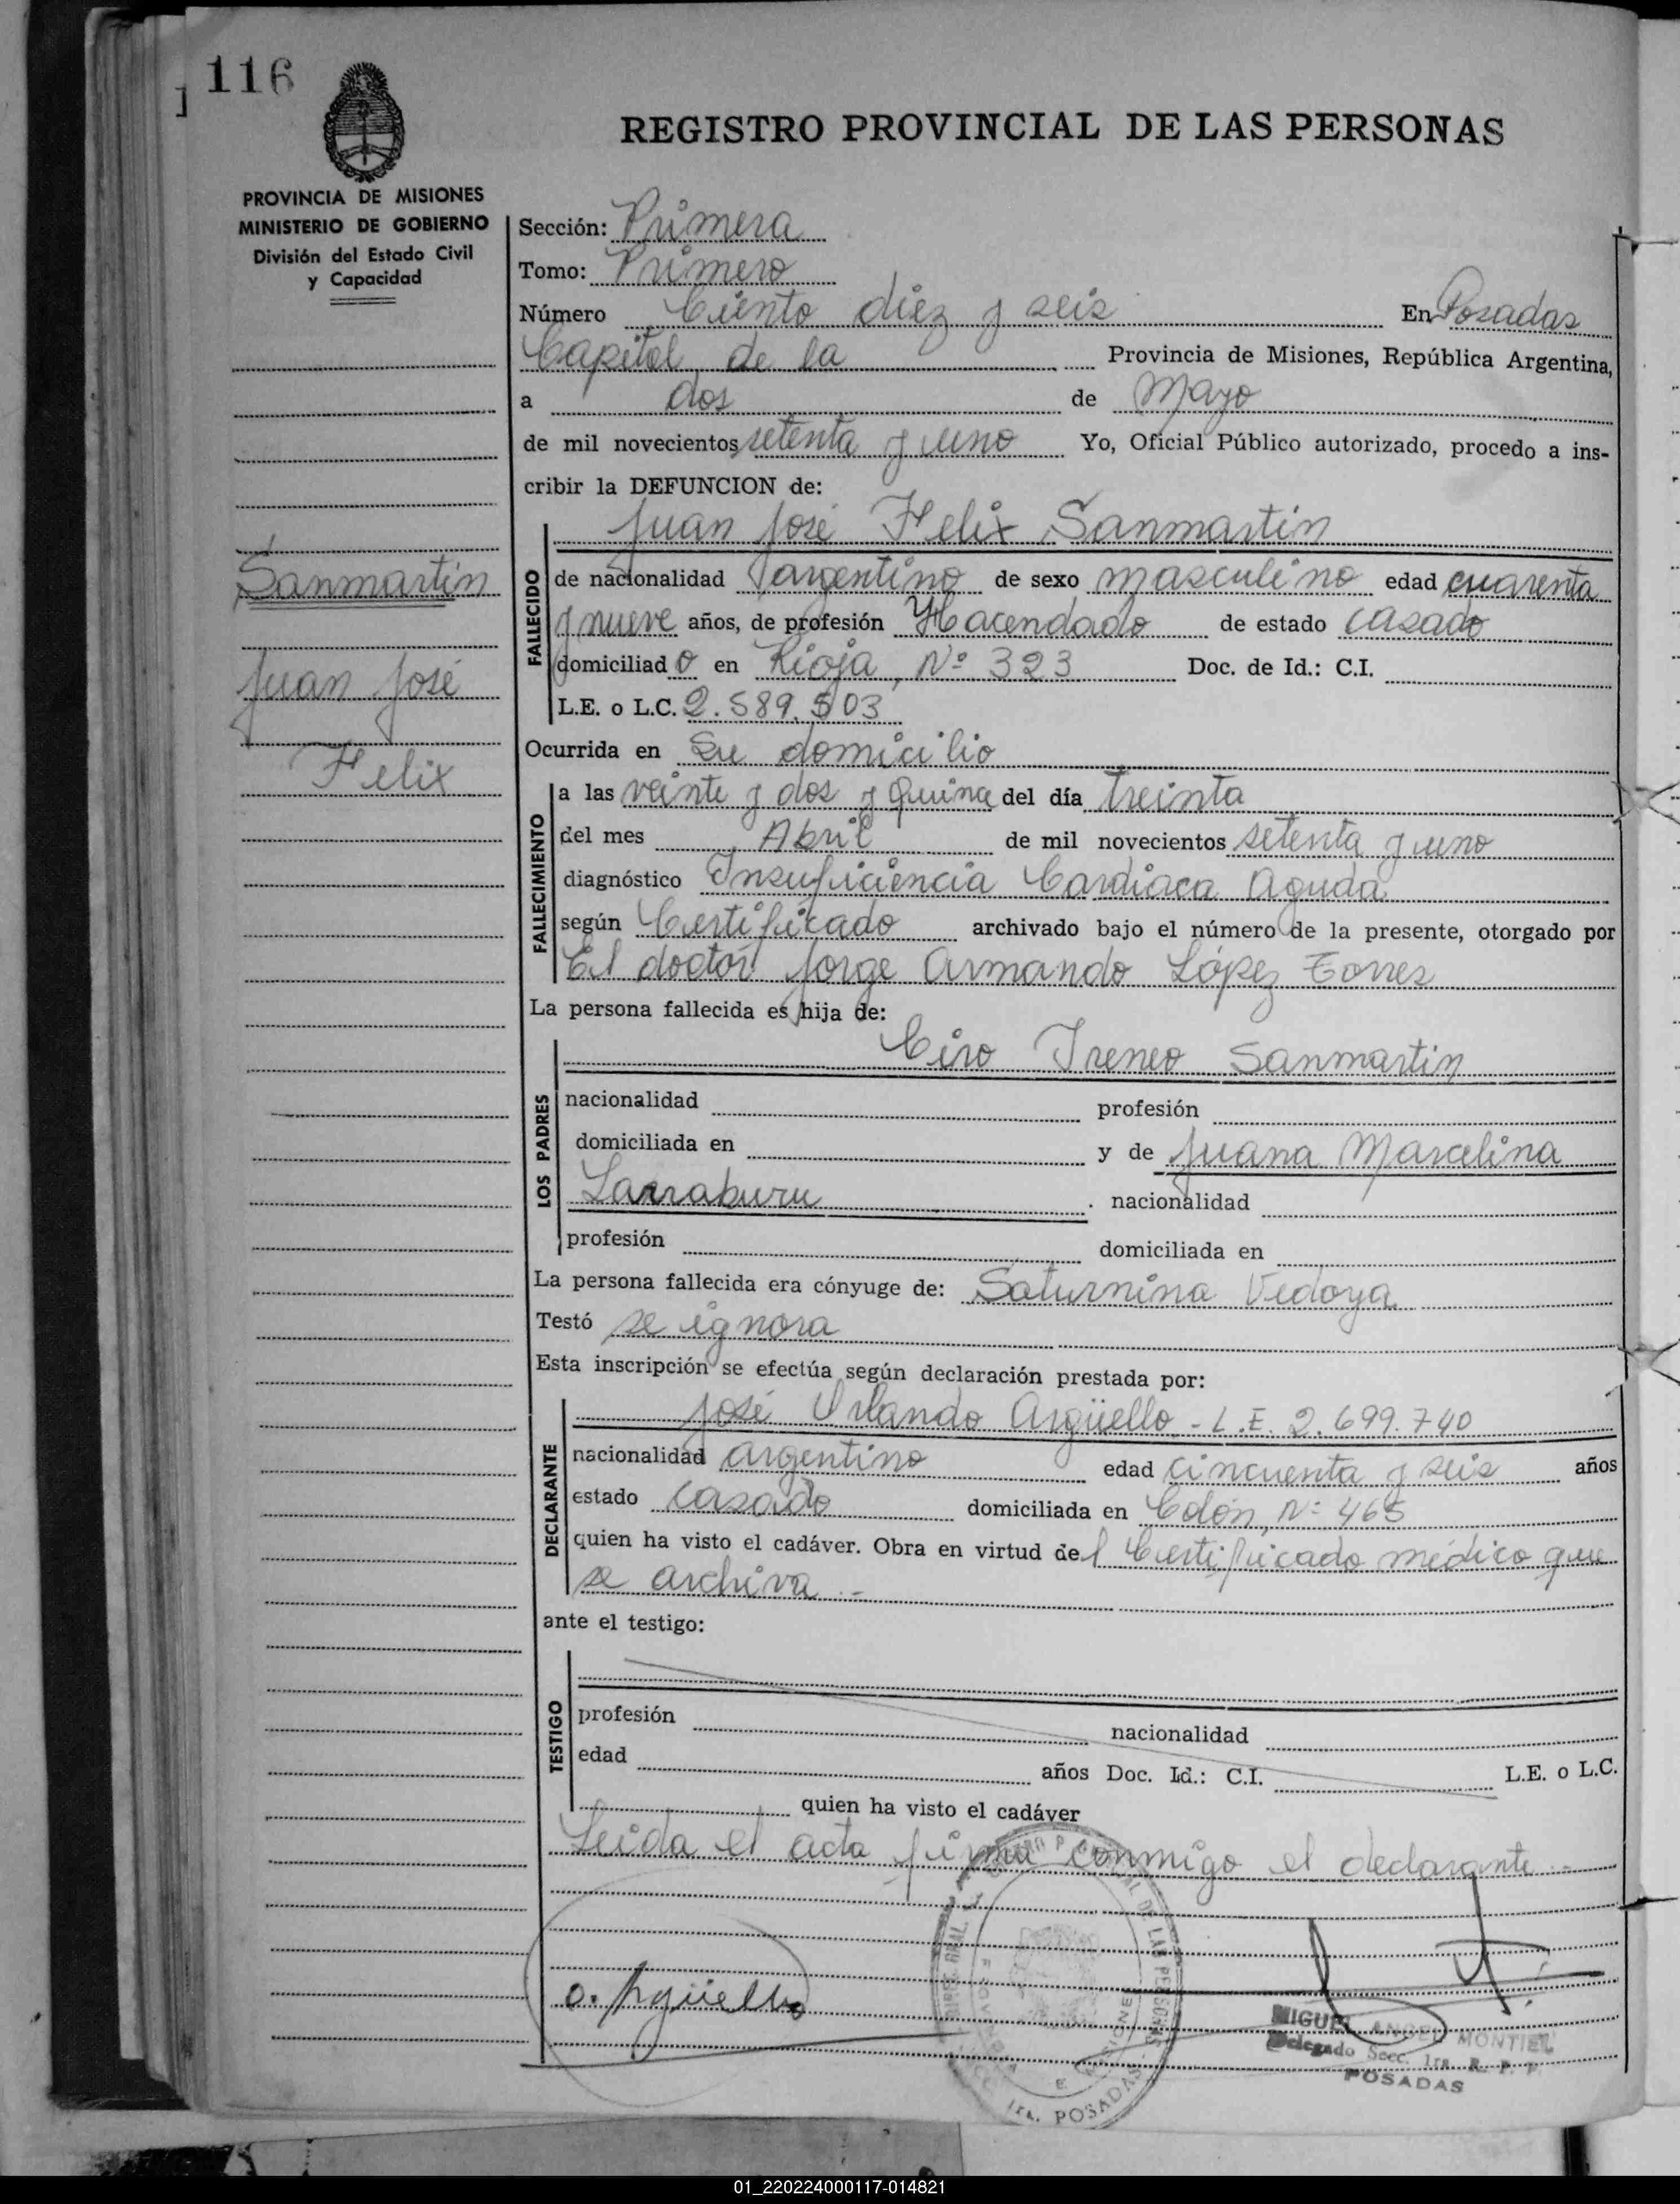 116
REGISTRO PROVINCIAL DE LAS PERSONAS
PROVINCIA DE MISIONES
MINISTERIO DE GOBIERNO
División del Estado Civil
y Capacidad
Sanmartin
Juan José
Felix
Sección: Primera
Tomo: Primero
Número Ciento diez y seis En Posadas
Capital de la Provincia de Misiones, República Argentina,
a dos de Mayo
de mil novecientos setenta y uno Yo, Oficial Público autorizado, procedo a ins-
cribir la DEFUNCION de:
Juan José Felix Sanmartin
FALLECIDO
de nacionalidad argentino de sexo masculino edad cuarenta
y nueve años, de profesión Hacendado de estado casado
domiciliado en Rioja, Nº 323 Doc. de Id.: C.I.
L.E. o L.C. 2.589.503
Ocurrida en Su domicilio
FALLECIMIENTO
a las veinte y dos y quince del día treinta
del mes Abril de mil novecientos setenta y uno
diagnóstico Insuficiencia Cardiaca Aguda
según Certificado archivado bajo el número de la presente, otorgado por
El doctor Jorge Armando López Torres
La persona fallecida es hija de:
LOS PADRES
Ciro Ireneo Sanmartin
nacionalidad profesión
domiciliada en y de Juana Marcelina
Larraburu. nacionalidad
profesión domiciliada en
La persona fallecida era cónyuge de: Saturnina Vedoya
Testó se ignora
Esta inscripción se efectúa según declaración prestada por:
DECLARANTE
José Orlando Argüello - L.E. 2.699.740
nacionalidad argentino edad cincuenta y seis años
estado casado domiciliada en Colón, Nº 465
quien ha visto el cadáver. Obra en virtud del Certificado médico que
se archiva.-
ante el testigo:
TESTIGO
profesión nacionalidad
edad años Doc. Id.: C.I. L.E. o L.C.
quien ha visto el cadáver
Leida el acta firma conmigo el declarante.-
O. Argüello
MIGUEL ANGEL MONTIEL
Delegado Secc. 1ra. R. P. P.
POSADAS
1ra. POSADAS
01_220224000117-014821